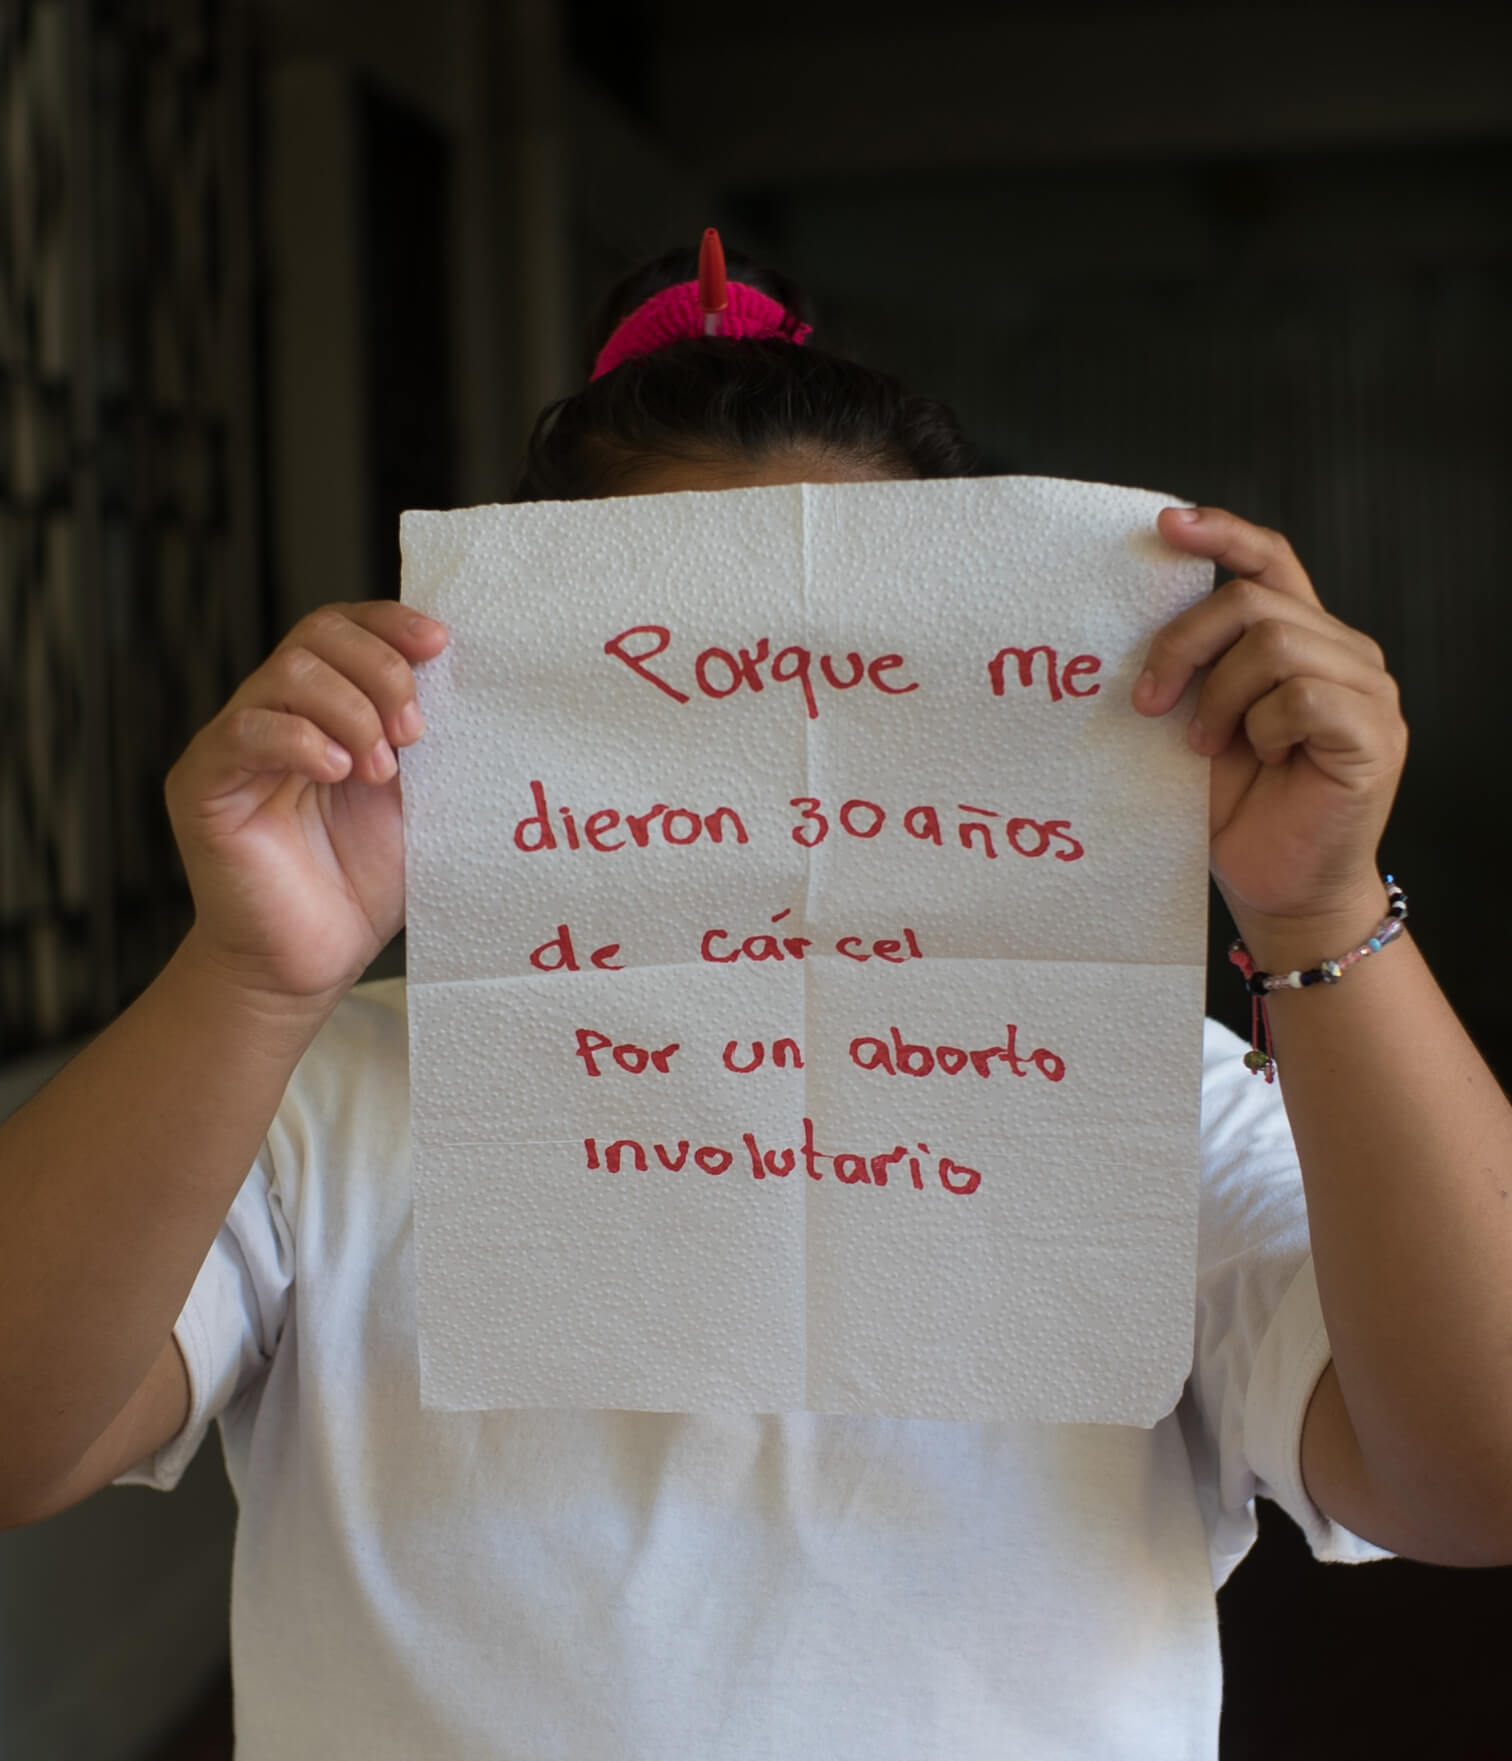 Porque me
dieron 30 años
de cárcel
Por un aborto
involutario